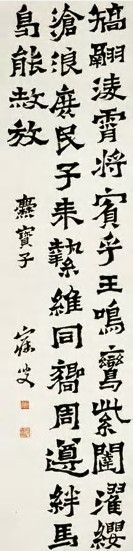 矯翮淩霄將賓乎王鳴鸞紫闥濯纓
滄浪庶民子来縶維同嚮周遵絆馬
曷能赦放
爨寶子 寐叟